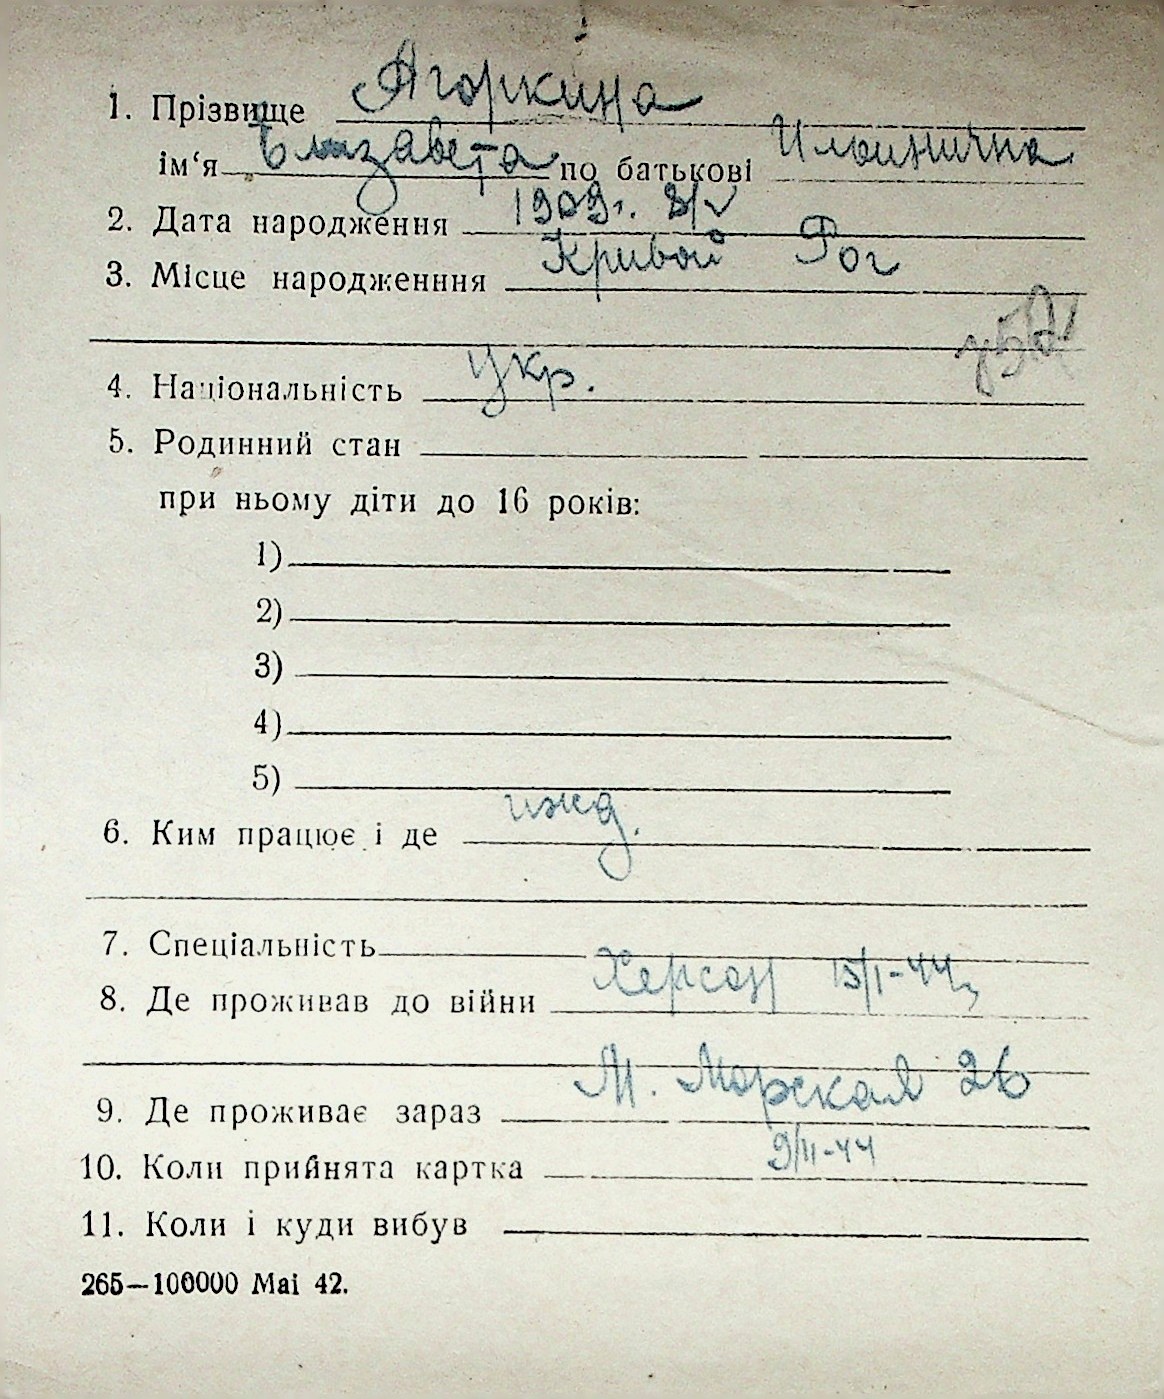 1. Прізвище Ягоркина
ім‘я Елизавета по батькові Ильинична
2. Дата народження 1909 г. 8/V
3. Місце народженння Кривой Рог
4. Національність укр.
5. Родинний стан
при ньому діти до 16 років:
1)
2)
3)
4)
5)
6. Ким працює і де ижд.
7. Спеціальність
8. Де проживав до війни Херсон 15/I-44
9. Де проживає зараз М. Морская 26
10. Коли прийнята картка 9/II-44
11. Коли і куди вибув
265—100000 Mai 42.